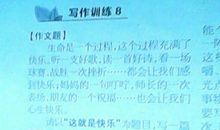 写作训练8
【作文题】
生命是一个过程，这个过程充满了
快乐，听一支好歌，读一首好诗，看一场
球赛，战胜一次挫折……都会让我们感
到快乐；妈妈的一句叮咛，师长的一次
表扬，朋友的一个祝福……也会让我们
心生快乐。
请以“这就是快乐”为题目，写一篇
能
个